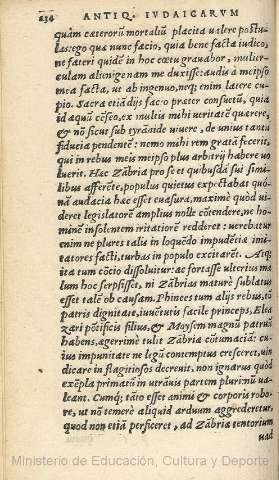 234 ANTIQ. IVDAICARVM
quàm cæterorũ mortaliũ placita ualere postu-
las: ego quæ nunc facio, quia bene facta iudico,
ne fateri quidẽ in hoc cœtu grauabor, mulier-
culam alienigenam me duxisse: audis à meipso
mea facta, ut ab ingenuo, neq; enim latere cu-
pio. Sacra etiã dijs facio præter consuetũ, quia
id aquũ cẽseo, ex multis mihi veritatẽ quærere,
& nõ sicut sub tyrãnide uiuere, de unius tantũ
fiducia pendentẽ: nemo mihi rem gratã fecerit,
qui in rebus meis meipso plus arbitrij habere uo
luerit. Hæc Zãbria pro se et quibusdã sui simi-
libus afferẽte, populus quietus expectabat quo-
nã audacia hæc esset euasura, maximè quòd ui-
deret legislatorẽ amplius nolle cõtendere, ne ho-
minẽ insolentem irritatiorẽ redderet: uerebatur
enim ne plures talis in loquẽdo impudẽtiæ imi-
tatores facti, turbas in populo excitarẽt. Atq;
ita tum cõcio dissoluitur: ac fortasse ulterius ma
lum hoc serpsisset, ni Zãbrias maturè sublatus
esset talẽ ob causam. Phinees tum alijs rebus, tũ
patris dignitate, iuuẽturis facile princeps, Elea
zari põtificis filius, & Moysem magnũ patruũ
habens, ægerrimè tulit Zãbriæ cõtumaciã: cu-
ius impunitate ne legũ contemptus cresceret, uin
dicare in flagitiosos decreuit, non ignarus quòd
exẽpla primatũ in utrãuis partem plurimũ ua-
leant. Cumq; tãto esset animi & corporis robo-
re, ut nõ temerè aliquid arduum aggrederetur,
quod non etiã perficeret, ad Zãbriæ tentorium
uad
Ministerio de Educación, Cultura y Deporte